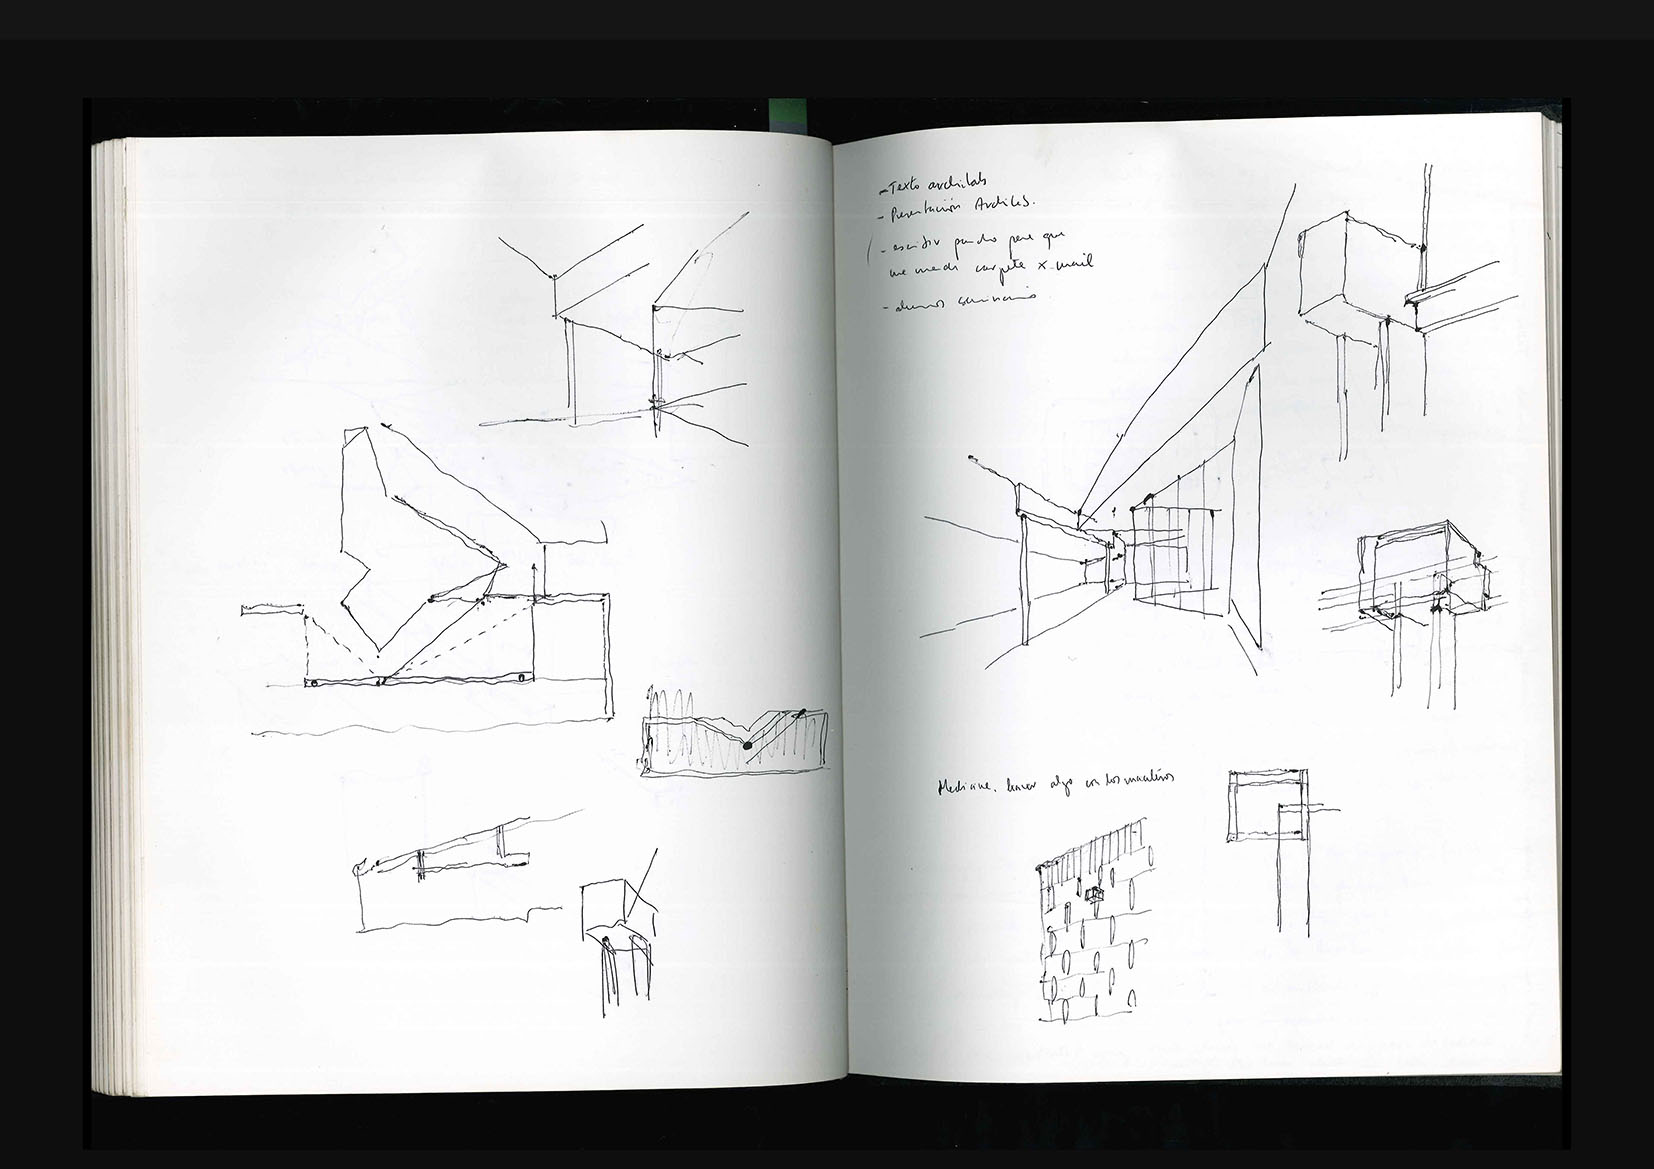 - Texto archilab
- Presentación Archilab.
- escribir pancho para que
me mande carpeta x mail
- alumnos seminario
Medicine, hacer algo con los